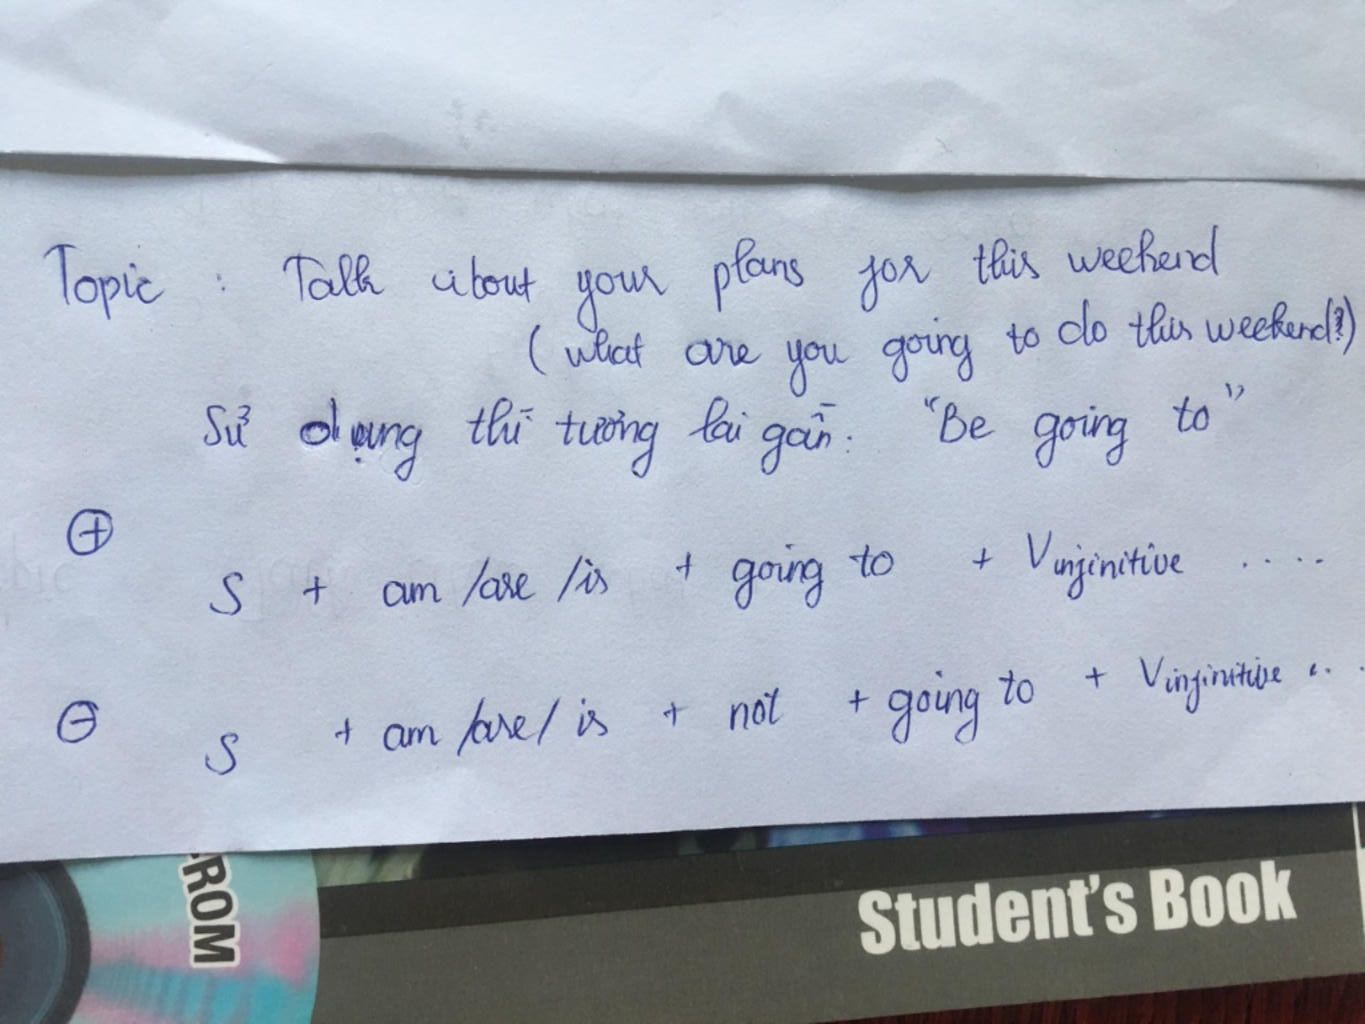 Topic : Talk about your plans for this weekend
( what are you going to do this weekend?)
Sử dụng thì tương lai gần: "Be going to"
⊕
S + am /are /is + going to + Vinfinitive .....
⊖ S + am /are/ is + not + going to + Vinfinitive ...
-ROM
Student's Book